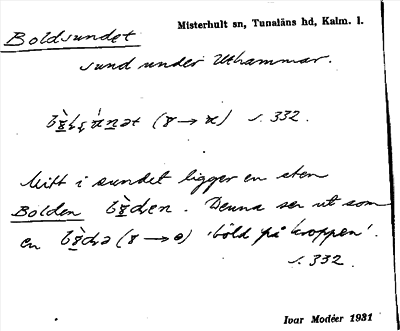 Boldsundet
Misterhult sn, Tunaläns hd, Kalm. l.
sund under Uthammar.
s. 332.
Mitt i sundet ligger en sten
Bolden. Denna ser ut som
en 'böld på kroppen'.
s. 332.
Ivar Modéer 1931